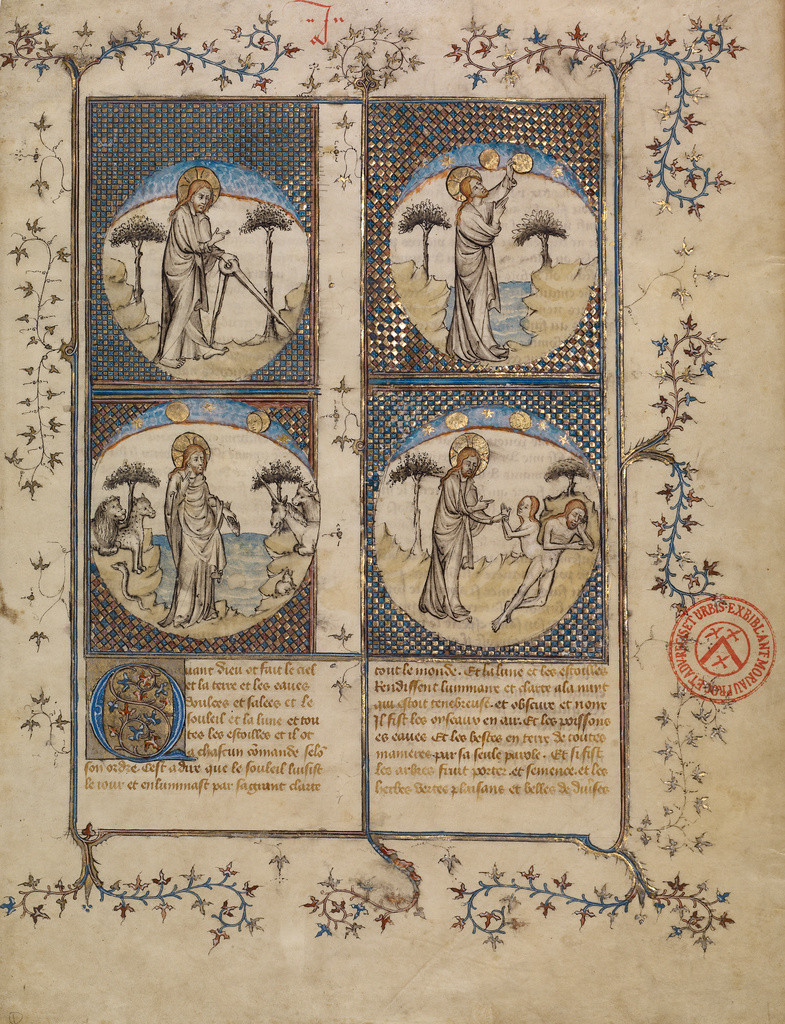 J
Quant dieu ot fait le ciel
et la terre et les eaues
doulces et salees et le
souleil et la lune et tou
tes les estoilles et il ot
a chascun cōmande selō
son ordre. Cest a dire que le souleil luisist
le iour et enluminast par sa grant clarte
tout le monde. Et la lune et les estoilles
Rendissent luminaire et clarte a la nuyt
qui estoit tenebreuse. et obscure et noire
Il fist les oyseaux en air. Et les poissons
es eaues Et les bestes en terre de toutes
manieres par sa seule parole. Et si fist
les arbres fruit porter. et semence. et les
herbes vertes plaisans et belles de diuises
EX BIBL. ANT. MORIAU PROC. ET ADV. REGIS ET URBIS